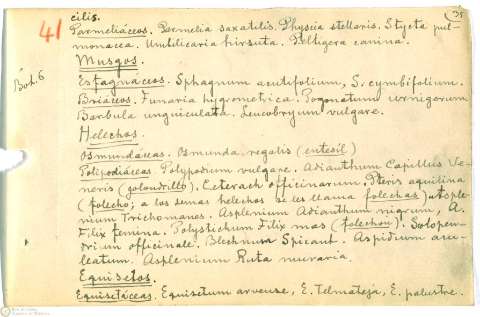 41 cilis. 35
Parmeliáceos. Parmelia saxatilis. Physcia stellaris. Stycta pul-
monacea. Umbilicaria hirsuta. Peltigera canina.
Musgos.
Bot. 6
Esfagnáceos. Sphagnum acutifolium, S. cymbifolium.
Briáceos. Funaria hygrometrica. Pogonatum urnigerum
Barbula unguiculata. Leucobryum vulgare.
Helechos.
Osmundáceas. Osmunda regalis (entesil)
Polipodiáceas. Polypodium vulgare. Adianthum Capillus Ve-
neris (golondrillo). Ceterach officinarum. Pteris aquilina
(folecho; a los demas helechos se les llama folechas) Asple-
nium Trichomanes. Asplenium Adianthum nigrum, A.
Filix femina. Polystichum Filix mas (folechon). Scolopen-
drium officinale. Blechnum Spicant. Aspidium acu-
leatum. Asplenium Ruta muraria.
Equisetos.
Equisetáceas. Equisetum arvense, E. Telmateja, E. palustre.